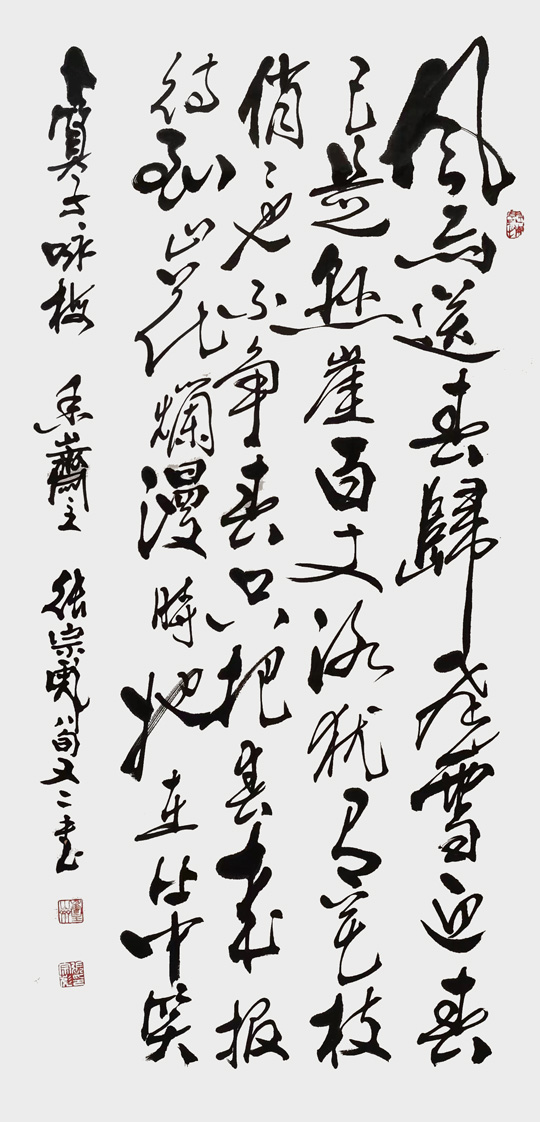 风雨送春歸飛雪迎春
已是懸崖百丈冰猶有花枝
俏〻也不争春只把春来報
待到山花爛漫時她在丛中笑
卜算子咏梅 齋主 張宗 八旬又二书